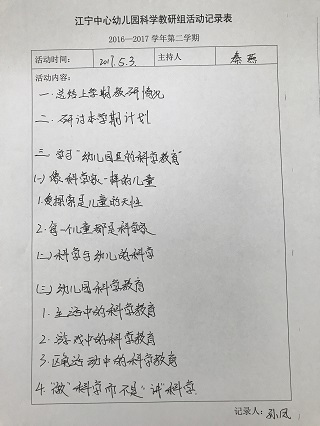 江宁中心幼儿园科学教研组活动记录表
2016—2017 学年第二学期
活动时间: 2017.5.3. 主持人 秦燕
活动内容:
一.总结上学期教研情况
二.研讨本学期计划
三.学习“幼儿园里的科学教育”
(一)像科学家一样的儿童
1.爱探索是儿童的天性
2.每一个儿童都是科学家
(二)科学与幼儿的科学
(三)幼儿园科学教育
1.生活中的科学教育
2.游戏中的科学教育
3.区角活动中的科学教育
4.“做”科学而不是“讲”科学
记录人: 孙凤